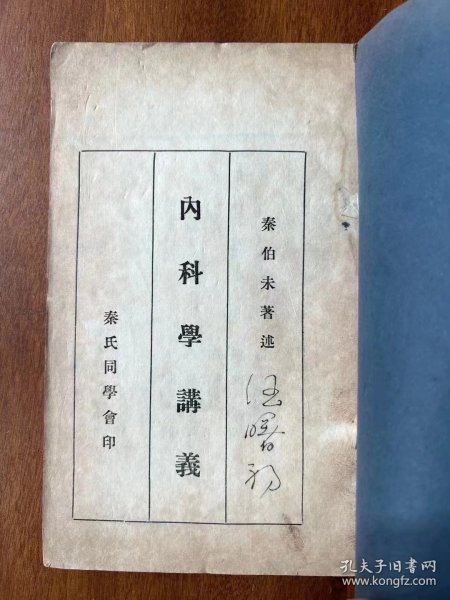 秦伯未著述
內科學講義
秦氏同學會印
孔夫子旧书网
www.kongfz.com